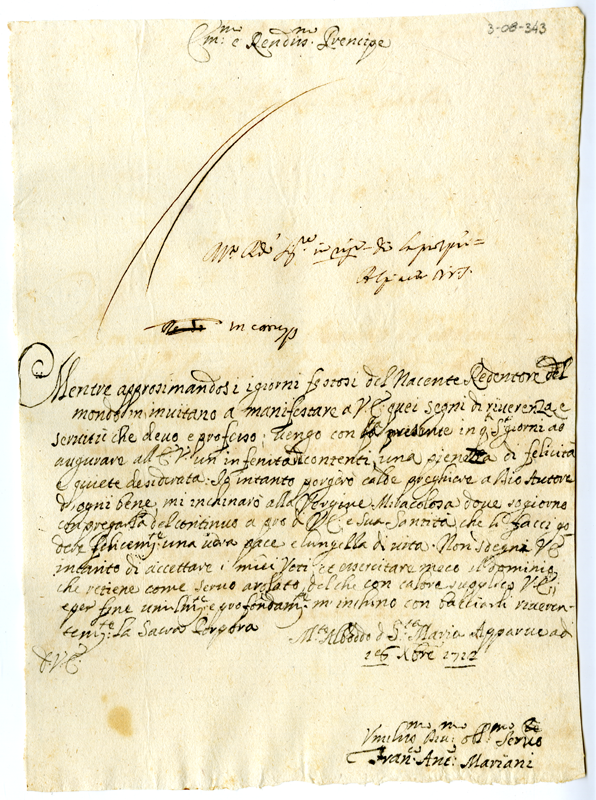 3-08-343
Em.mo e Rendmo. Prencipe
In camp
Mentre approsimandosi i giorni festosi del Nacente Redentore del
mondo m'invitano a manifestare a V.E. quei segni di riverenza e
servitù che devo e professo; vengo con la presente in q.sti giorni ad
augurare all'E.V. un'infenità di contenti, una pienezza di felicità
e quiete desiderata. Io intanto porgerò calde preghiere a Dio Autore
d'ogni bene, mi inchinarò alla Vergine Milacolosa dove sogiorno
con pregarla del continuo a pro di V.E. e sua Santità, che li facci go-
dere felicem.te una vera pace e lunga di vita. Non sdegni V.E.
intanto di accettare i miei Voti, et esercitare meco il dominio,
che retiene come servo, del che con calore suplico V.E.;
e per fine umilm.te e profondam.te m'inchino con bacciarli riveren-
tem.te la Sacra Porpora
D.V.E. M.te d S.ta Maria Apparve adi
Xbre 1712
Umilmo Div.mo obl.mo Servo
Fran.o Ant.o Mariani